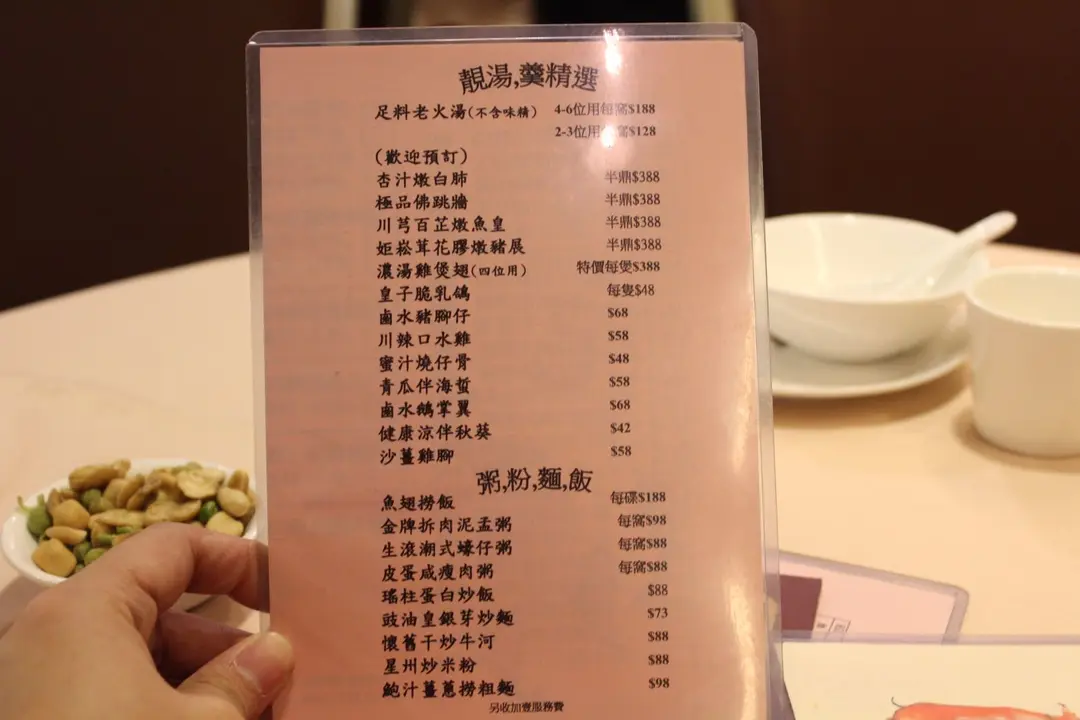 靚湯,羹精選
足料老火湯(不含味精) 4-6位用每窩$188
2-3位用每窩$128
(歡迎預訂)
杏汁燉白肺 半鼎$388
極品佛跳牆 半鼎$388
川芎百芷燉魚皇 半鼎$388
姬崧茸花膠燉豬展 半鼎$388
濃湯雞煲翅(四位用) 特價每煲$388
皇子脆乳鴿 每隻$48
鹵水豬腳仔 $68
川辣口水雞 $58
蜜汁燒仔骨 $48
青瓜伴海蜇 $58
鹵水鵝掌翼 $68
健康涼伴秋葵 $42
沙薑雞腳 $58
粥,粉,麵,飯
魚翅撈飯 每碟$188
金牌拆肉泥孟粥 每窩$98
生滾潮式蠔仔粥 每窩$88
皮蛋咸瘦肉粥 每窩$88
瑤柱蛋白炒飯 $88
豉油皇銀芽炒麵 $73
懷舊干炒牛河 $88
星州炒米粉 $88
鮑汁薑蔥撈粗麵 $98
另收加壹服務費